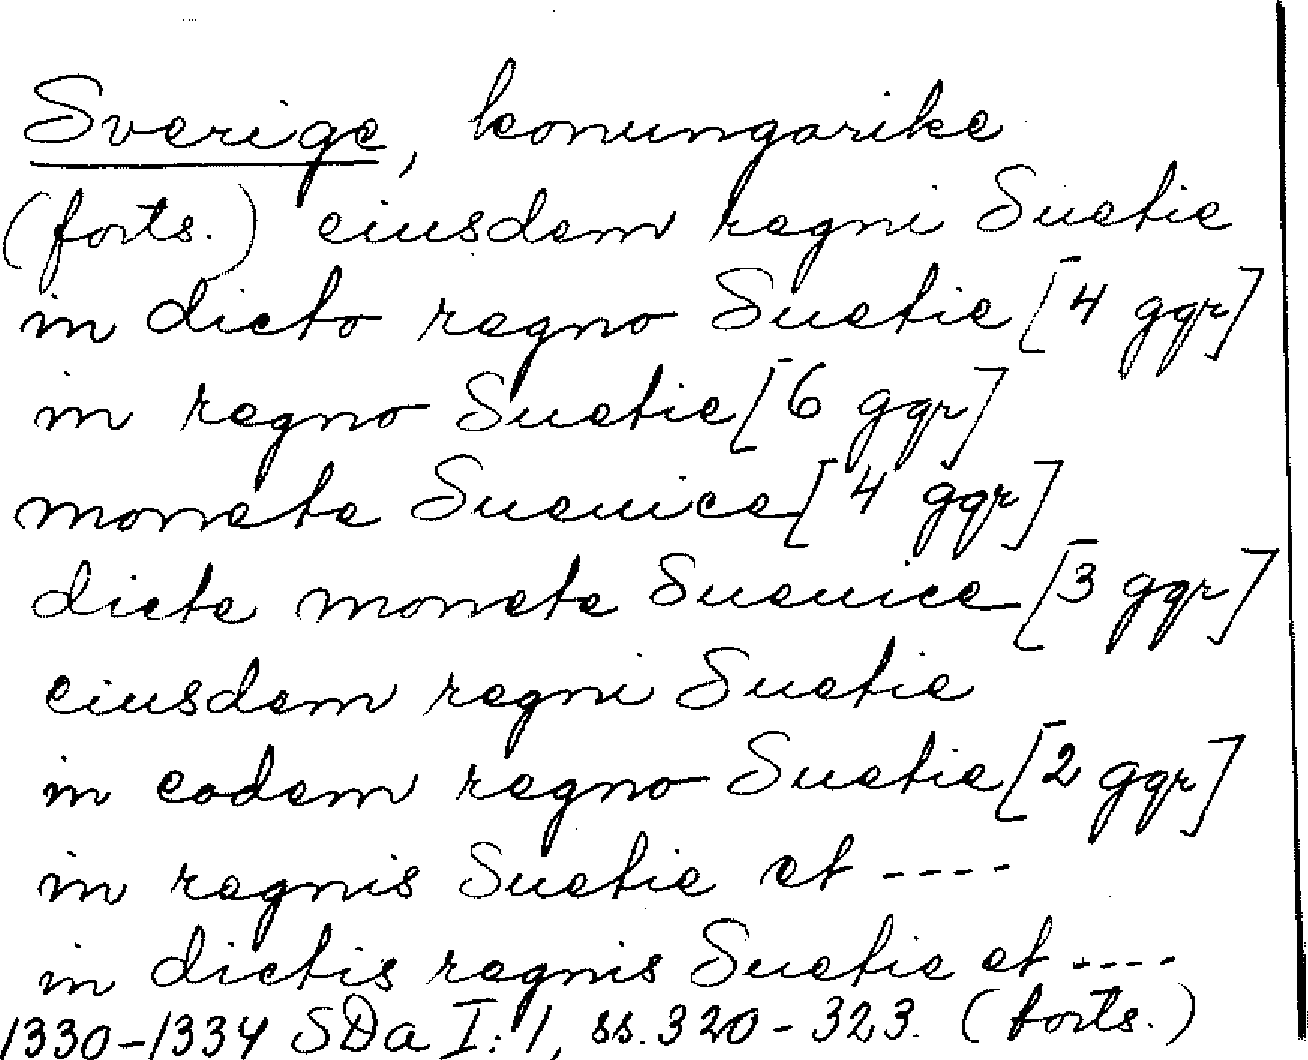 Sverige, konungarike
(forts.) eiusdem regni Suetie
in dicto regno Suetie [4 ggr]
in regno Suetie [6 ggr]
monete Sueuice [4 ggr]
dicte monete Sueuice [3 ggr]
eiusdem regni Suetie
in eodem regno Suetie [2 ggr]
in regnis Suetie et ----
in dictis regnis Suetie et ----
1330-1334 SDa I:1, ss.320-323. (forts.)